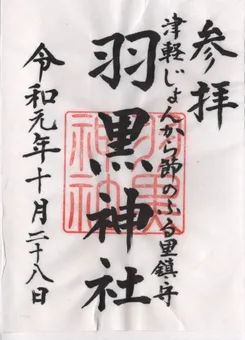 参拝
津軽じょんから節のふる里鎮守
羽黒神社
羽黒神社
令和元年十月二十八日